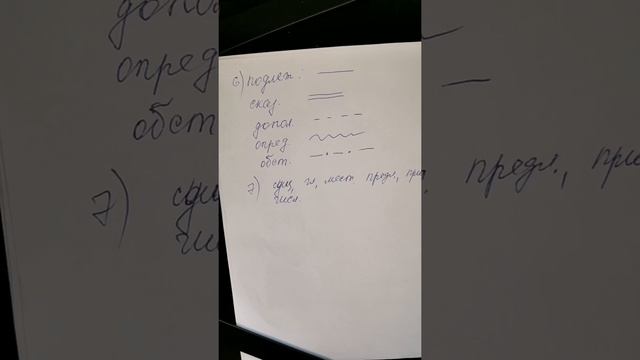 6) подлеж:
сказ.
допол.
опред.
обст.
7) сущ, гл, мест. предл., при
числ.